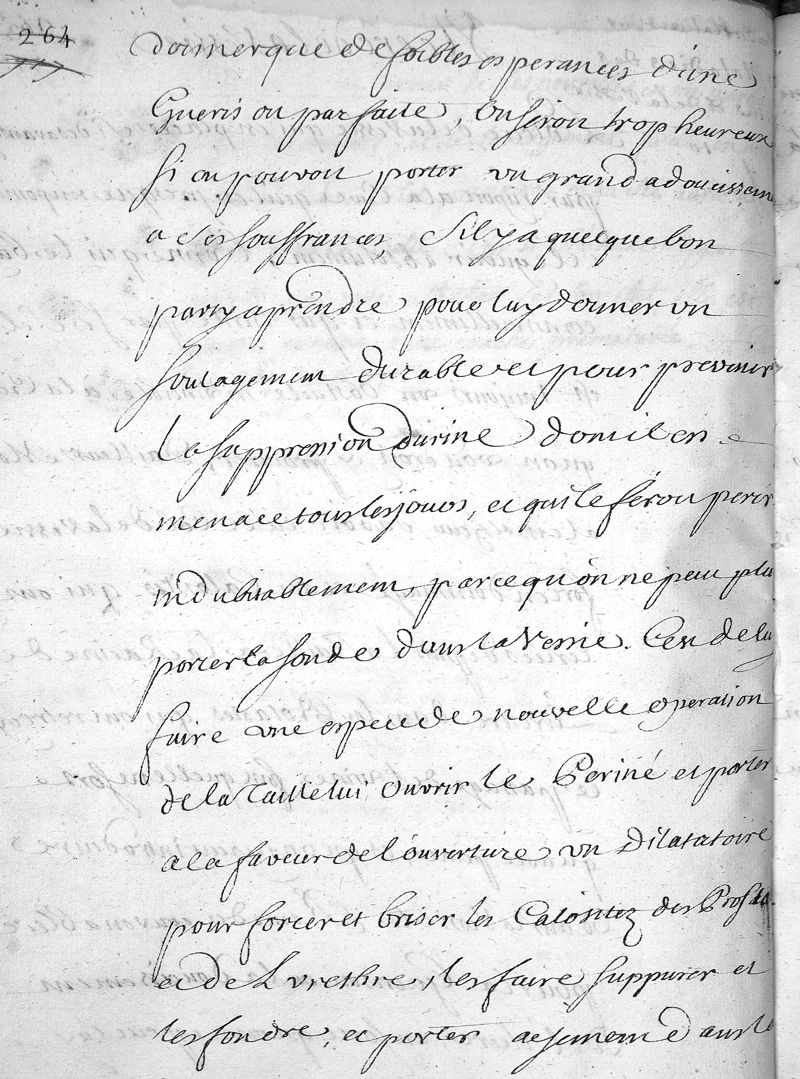 264
717
donner que de foibles esperances d'une
Guerison parfaite, on seroit trop heureux
si on pouvoit porter un grand adoucissem
a ses souffrances s'il y a quelque bon
party a prendre pour luy donner un
soulagement durable et pour prevenir
la suppression d'urine dont il en
menace tous les jours, et qui le feroit perir
indubitablement, parce qu'on ne peut plu
porter la sonde dans la Vessie. C'est de luy
faire une espece de nouvelle operation
de la Taille lui ouvrir le Periné et porter
a la faveur de l'ouverture un Dilatatoire
pour forcer et briser les Calositez des Prosta
et de L'urethre, les faire suppurer et
les fondre, et porter aisement dans le